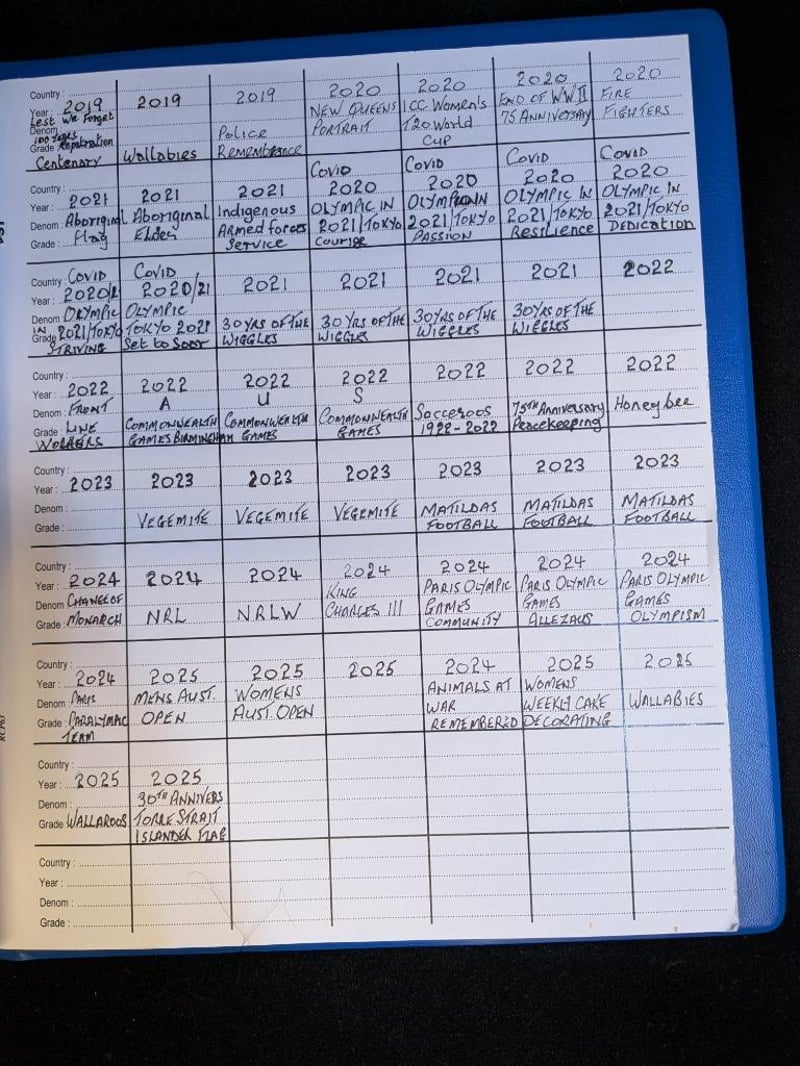 Country :
Year : 2019 2019 2019 2020 2020 2020 2020
Lest We Forget NEW QUEENS ICC Women's END OF WW II FIRE
Denom Police PORTRAIT T20 World 75 ANNIVERSARY FIGHTERS
100 Years CUP
Grade Repatriation
Centenary Wallabies REMEMBERANCE
Covid Covid Covid Covid
Country :
Year : 2021 2021 2021 2020 2020 2020 2020
Denom : Aboriginal Aboriginal Indigenous OLYMPIC IN IN OLYMPIC IN OLYMPIC IN
Grade : Flag Elder Armed forces 2021/TOKYO 2021/TOKYO 2021/TOKYO 2021/TOKYO
Service Courage PASSION Resilience DEDICATION
Country : Covid Covid
Year : 2020/21 2020/21 2021 2021 2021 2021 2022
Denom OLYMPIC OLYMPIC
IN
Grade 2021/TOKYO TOKYO 2021 30 YRS OF THE 30 YRS OF THE 30 YRS OF THE 30 YRS OF THE
STRIVING Set to Soar WIGGLES WIGGLES WIGGLES WIGGLES
Country :
Year : 2022 2022 2022 2022 2022 2022 2022
Denom : FRONT A U S
Grade : LINE COMMONWEALTH COMMONWEALTH COMMONWEALTH Socceroos 75TH Anniversary Honey bee
WORKERS GAMES BIRMINGHAM GAMES GAMES 1922-2022 Peacekeeping
Country :
Year : 2023 2023 2023 2023 2023 2023 2023
Denom :
Grade : VEGEMITE VEGEMITE VEGEMITE MATILDAS MATILDAS MATILDAS
FOOTBALL FOOTBALL FOOTBALL
Country :
Year : 2024 2024 2024 2024 2024 2024 2024
Denom CHANGE OF KING PARIS OLYMPIC PARIS OLYMPIC PARIS OLYMPIC
Grade : MONARCH NRL NRLW CHARLES III GAMES GAMES GAMES
COMMUNITY ALLEZAUS OLYMPISM
Country :
Year : 2024 2025 2025 2025 2024 2025 2025
Denom : PARIS MENS AUST. WOMENS ANIMALS AT WOMENS
Grade : PARALYMPIC OPEN AUST. OPEN WAR WEEKLY CAKE WALLABIES
TEAM REMEMBERED DECORATING
Country :
Year : 2025 2025
Denom : 30TH ANNIVERS
Grade WALLAROOS TORRE STRAIT
ISLANDER FLAG
Country :
Year :
Denom :
Grade :